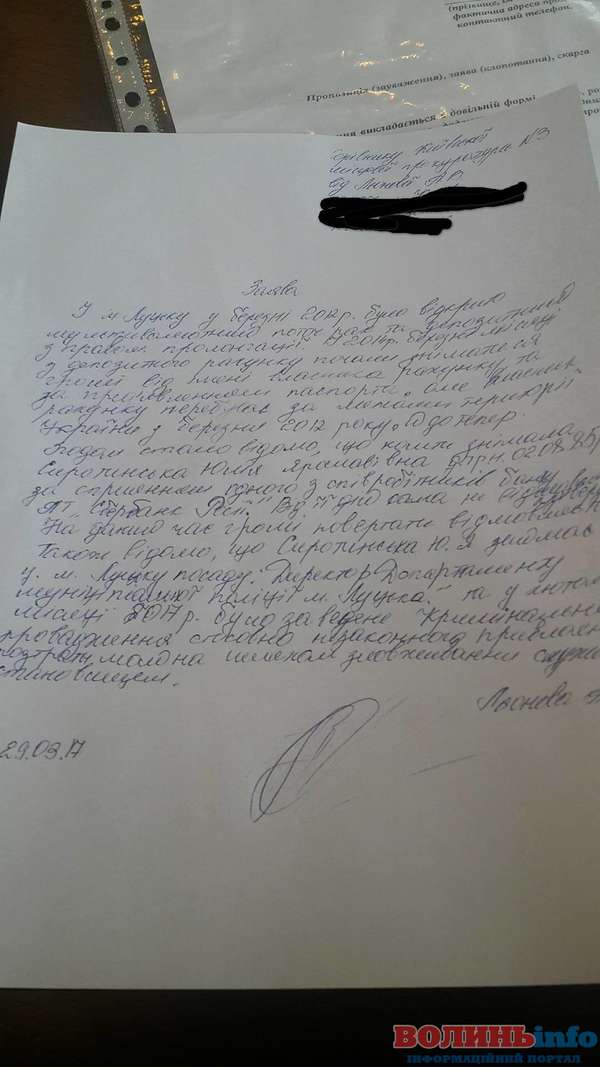 (прізвище, ім
фактична адреса про
контактний телефон.
Пропозиція (зауваження), заява (клопотання), скарга
викладається в довільній формі
Керівнику Київської
місцевої прокуратури №3
від
Заява
У м. Луцьку у березні 2012р. було відкрито
мультивалютний та депозитний
з правом пролонгації. В 2014р. березні місяці
з депозитного рахунку почали зніматися
гроші від імені власника рахунку та
за пред'явленням паспорта, але власник
рахунку перебуває за межами території
України у березня 2012 року і дотепер.
Згодом стало відомо, що кошти знімала
Сиротинська Юлія Ярославівна
за сприянням одного з співробітників банку
АТ "Сбербанк
На даний час гроші повертати відмовляється
Також відомо, що Сиротинська Ю.Я. займає
у м. Луцьку посаду: Директор Департаменту
муніціпальної поліції м. Луцька. та у лютому
місяці 2017р. було заведене "Кримінальне
провадження стовно незаконного
розтрати майна шляхом зловживання
становищем.
29.03.17
ВОЛИНЬinfo
ІНФОРМАЦІЙНИЙ ПОРТАЛ